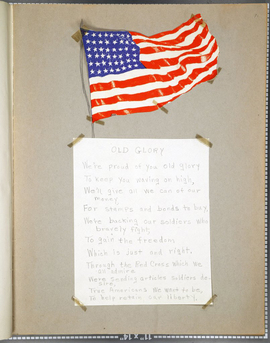 OLD GLORY
We're proud of you Old glory
To have you waving on high,
We'll give as we can of our
money
For stamps and bonds to buy,
We're backing our soldiers who
bravely fight,
To gain the freedom
Which is just and right.
Through the Red Cross which we
all admire
We're sending articles soldiers
True Americans we want to be,
To help retain our liberty.
11" x 14"